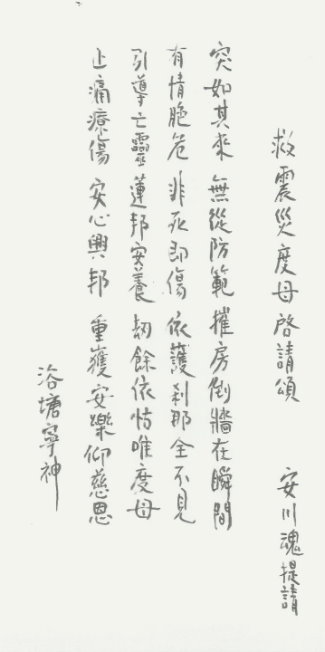 救震災度母啓請頌
安川魂提請
突如其來 無從防範 摧房倒牆在瞬間
有情脆危 非死即傷 依護刹那全不見
引導亡靈蓮邦安養 劫餘依怙唯度母
止痛療傷 安心興邦 重獲安樂仰慈恩
浴塘寧神